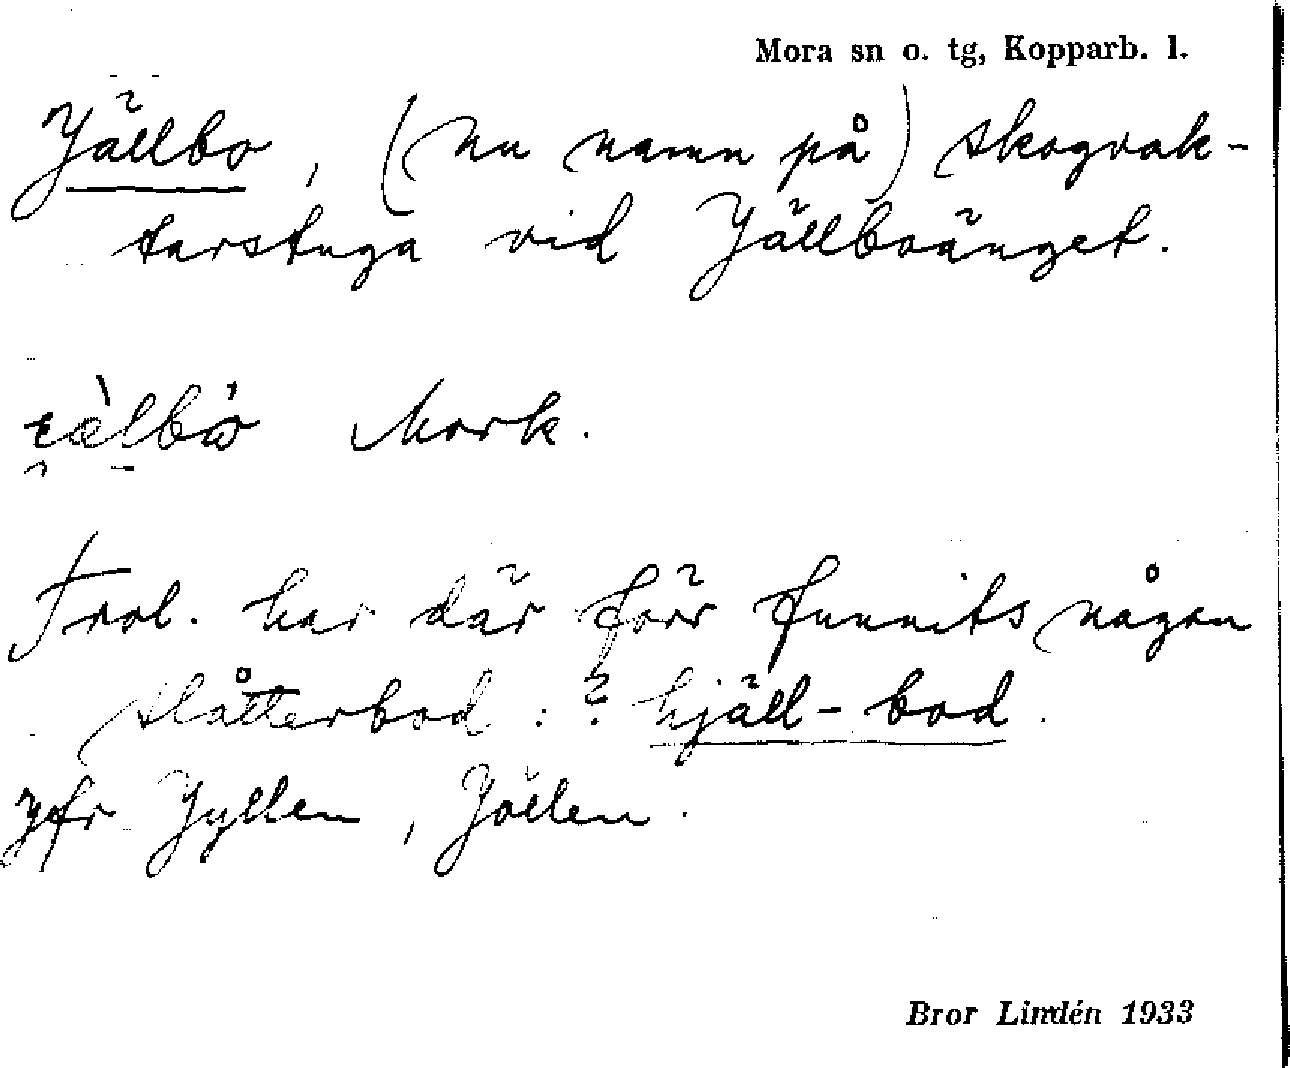 Mora sn o. tg, Kopparb. l.
Jällbo, (nu namn på) skogvak-
tarstuga vid Jällboänget.
Mork.
Trol. har där förr funnits någon
slåtterbod : ? hjäll-bod.
Jfr Jyllen, Jöllen.
Bror Lindén 1933